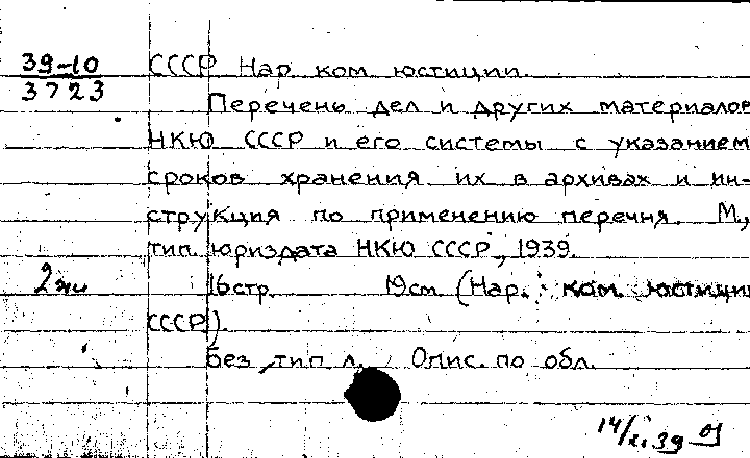 39-10 СССР Нар. ком. юстиции.
3723
Перечень дел и других материалов
НКЮ СССР и его системы с указанием
сроков хранения их в архивах и ин-
струкция по применению перечня. М.,
тип. юриздата НКЮ СССР, 1939.
16 стр. 19 см (Нар. ком. юстиции
СССР).
Без тип. л. Опис. по обл.